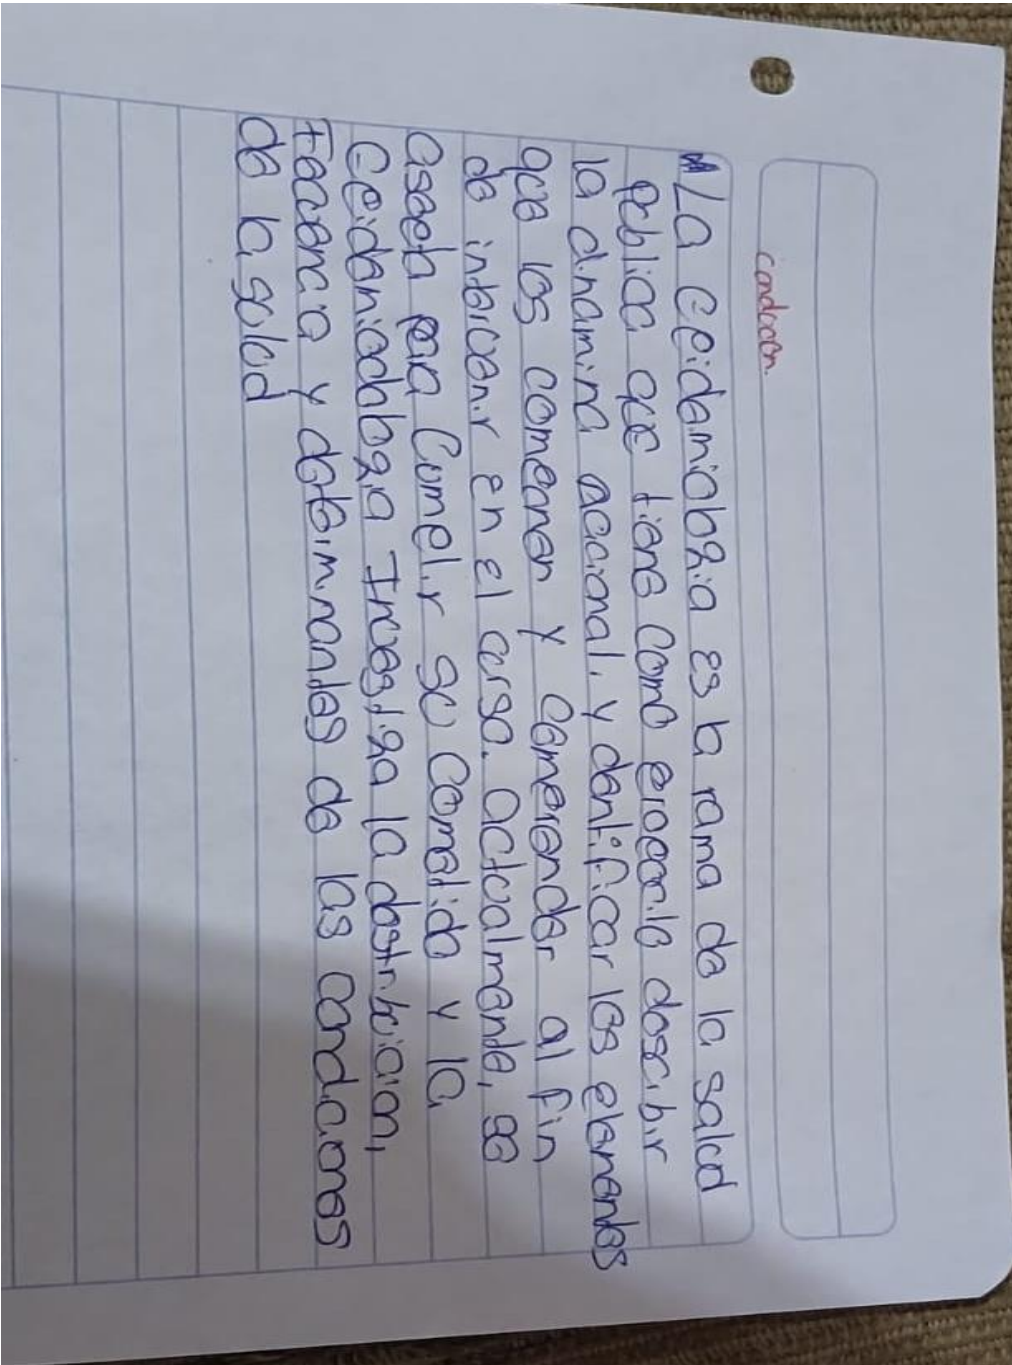 conclucion.
La Epidemiologia es la rama de la salud
publica que tiene como proposito describir
la dinamina accional, y dentificar los elementos
que los componen y comprender al fin
de intervenir en el curso. Actualmente, se
acepta para cumplir su cometido y la
Epidemiologia Investiga la distribucion,
frecuencia y determinantes de las condiciones
de la salud